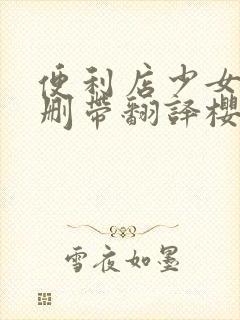 便利店少女
删带翻译樱
雪夜如墨